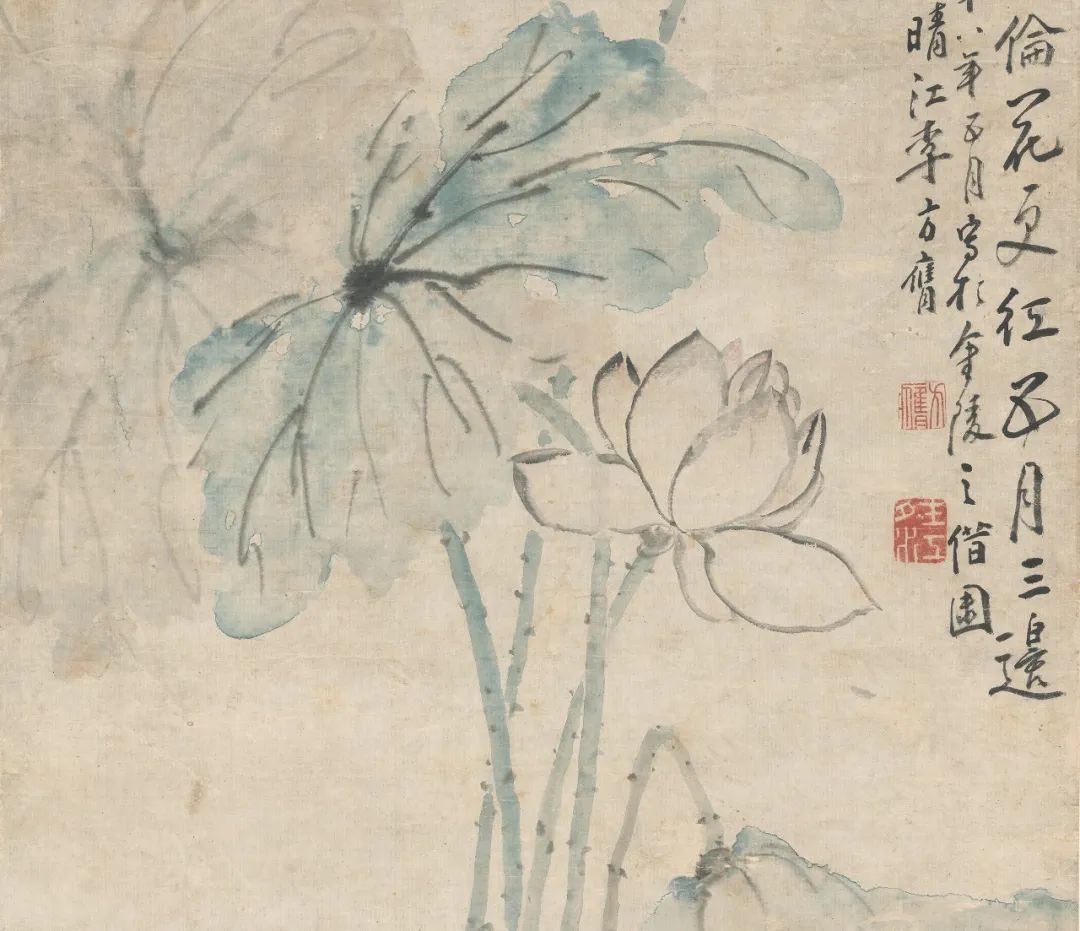 倫花更五月三邊
十八年五月寫於金陵之借園
晴江李方膺
方膺